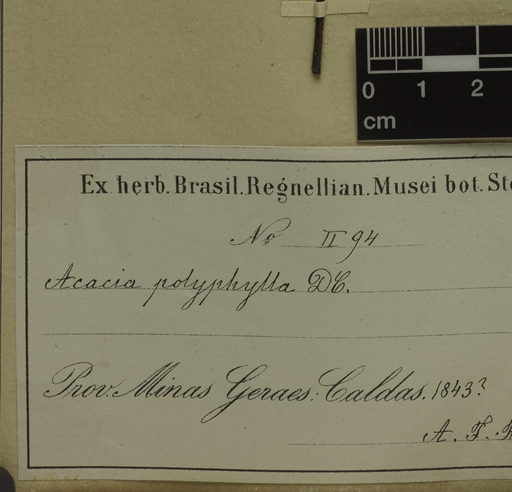 0 1 2
cm
Ex herb. Brasil. Regnellian. Musei bot. Sto
No II 94
Acacia polyphylla DC.
Prov. Minas Geraes: Caldas. 1843?
A. F.